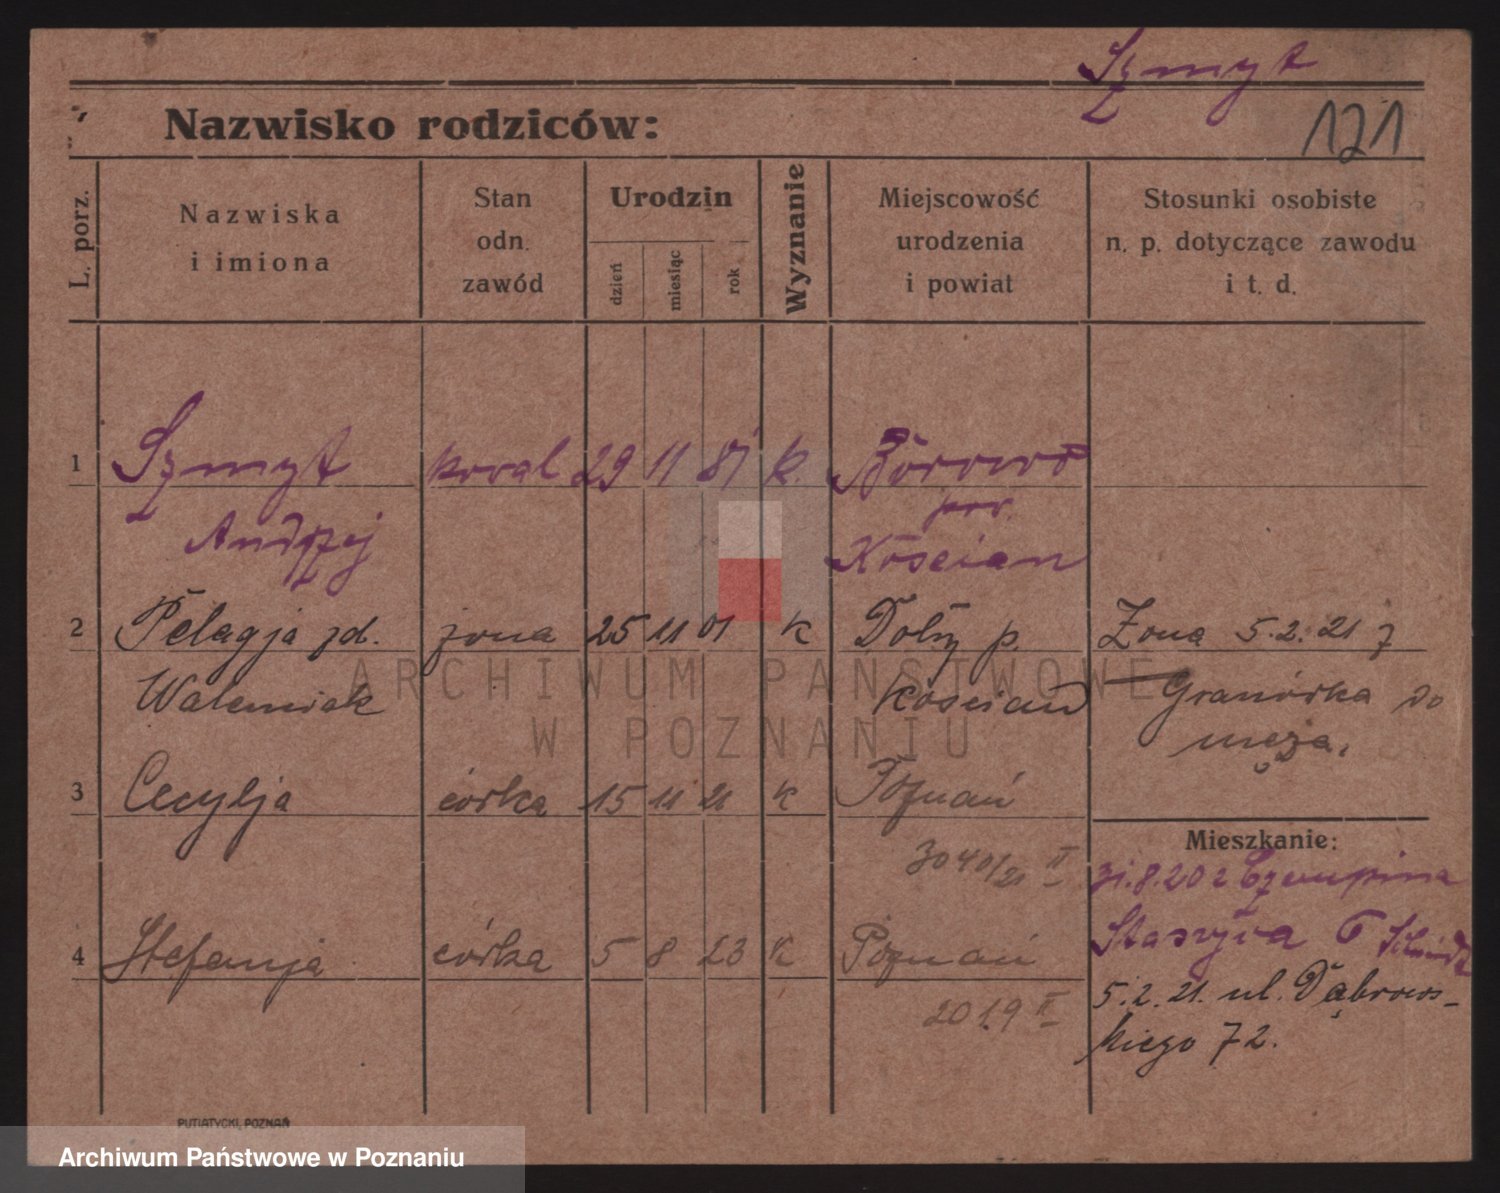 Szmyt
121
Nazwisko rodziców:
L. porz.
Nazwiska
i imiona
Stan
odn.
zawód
Urodzin
dzień
miesiąc
rok
Wyznanie
Miejscowość
urodzenia
i powiat
Stosunki osobiste
n. p. dotyczące zawodu
i t. d.
1 Szmyt kowal 29 11 81 k. Borowo
pow.
Andrzej Kościan
2 Pelagja zd. żona 25 11 01 k p. Żona 5.2.21 z
Kościan Granówka do
męża.
3 Cecylja córka 15 11 21 k Poznań
Mieszkanie:
3040/21 II
31.8.20 z Czempina
4 Stefanja córka 5 8 23 k Poznań
Staszyca 6
2019 II
5.2.21. ul. Dąbrows-
kiego 72.
ARCHIWUM PAŃSTWOWE
W POZNANIU
PUTIATYCKI, POZNAŃ
Archiwum Państwowe w Poznaniu